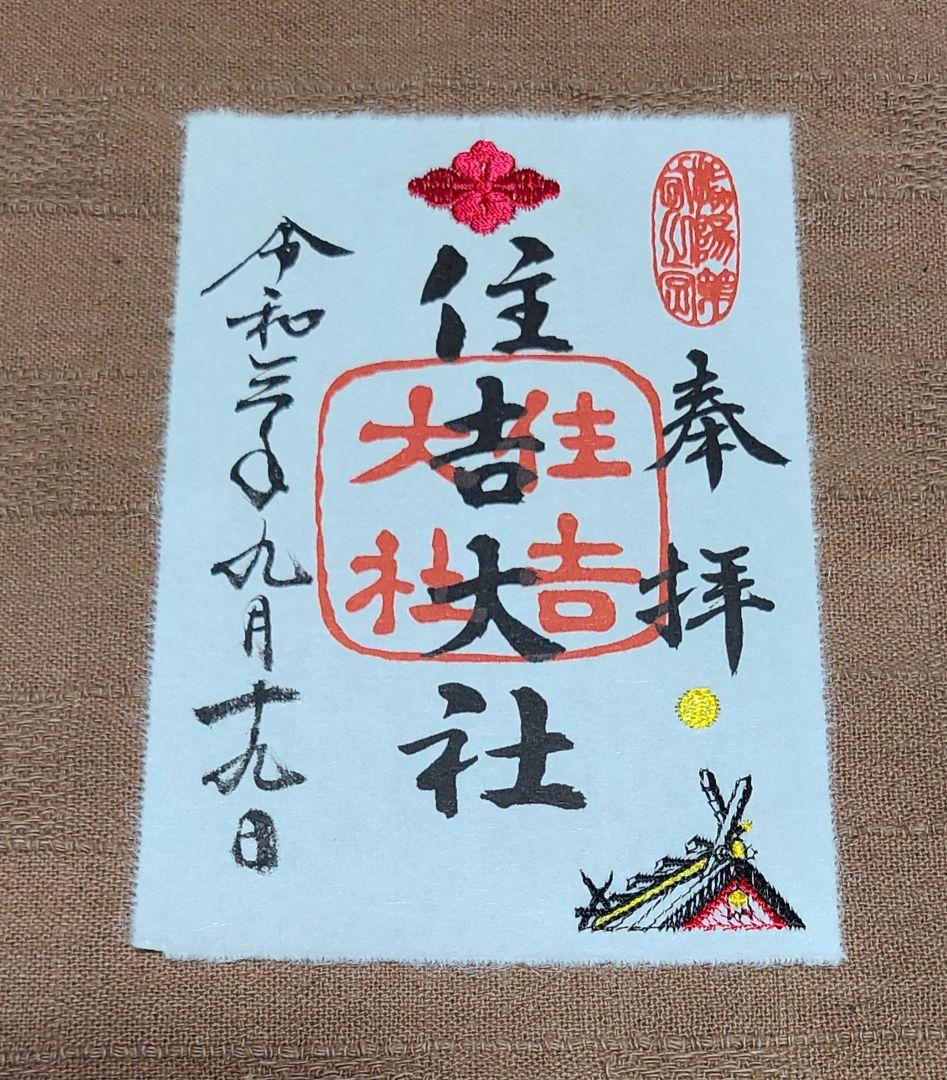 奉拝
住吉大社
住吉
大社
令和三年九月十九日